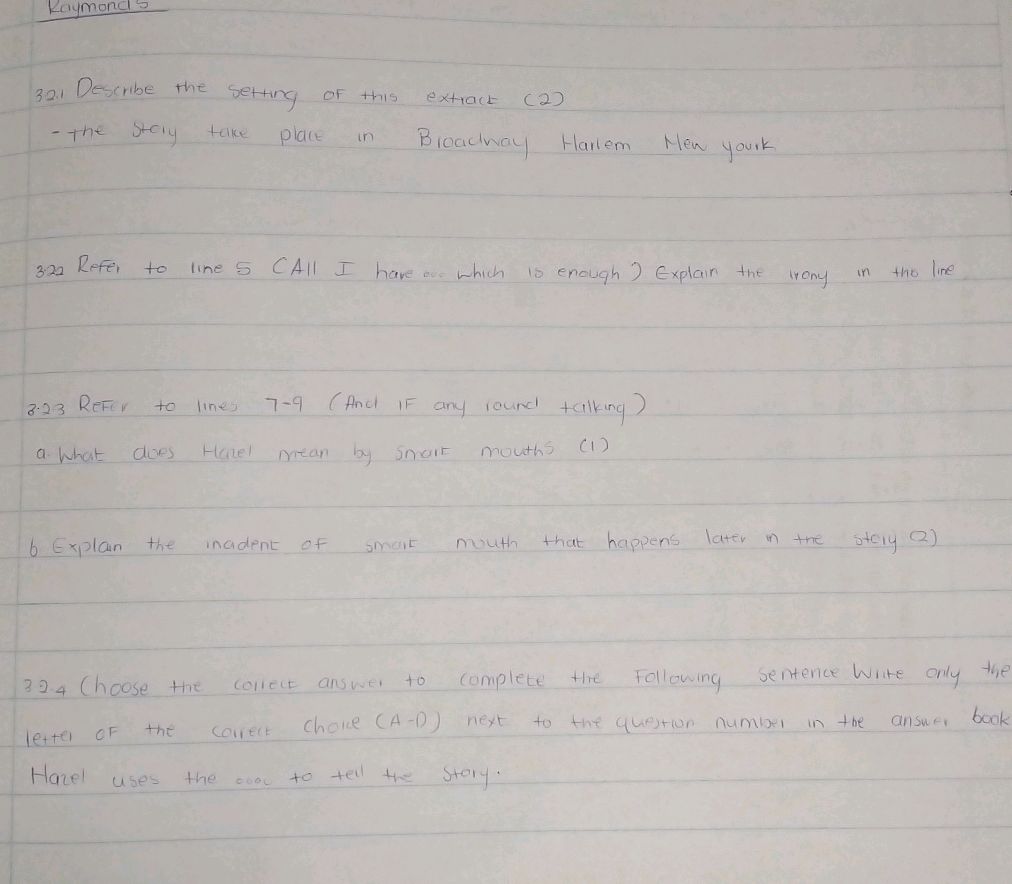 Raymond's
3.2.1 Describe the setting of this extract (2)
- the story take place in Broadway Harlem New yourk
3.2.2 Refer to line 5 (All I have ... which is enough) Explain the irony in the line
3.2.3 Refer to lines 7-9 (And IF any round talking)
a. What does Hazel mean by smart mouths (1)
b Explan the inadent of smart mouth that happens later in the story (2)
3.2.4 Choose the correct answer to complete the Following sentence Write only the
letter of the correct choice (A-D) next to the question number in the answer book
Hazel uses the .... to tell the story.